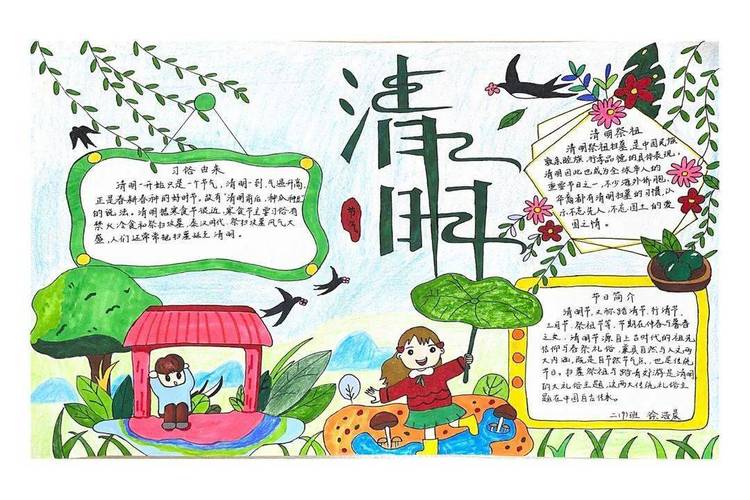 清明
节气
习俗由来
清明一开始只是一个节气,清明一到,气温升高,
正是春耕春种的好时节,故有"清明前后,种瓜种豆"
的说法。清明节寒食节很近,寒食节主要习俗有
禁火冷食和祭扫坟墓,秦汉时代,祭扫坟墓风气大
盛,人们还常常把扫墓延至清明。
清明祭祖
清明祭祖扫墓,是中国民族
敦亲睦族、行孝品德的具体表现,
清明因此也成为全球华人的
重要节日之一,不少海外侨胞,
华裔都有清明扫墓的习惯,以
示不忘先人、不忘国土的爱
国之情。
节日简介
清明节,又称踏青节、行清节、
三月节、祭祖节等,节期在仲春与暮春
之交。清明节源自上古时代的祖先
信仰与春祭礼俗,兼具自然与人文两
大内涵,既是自然节气点,也是传统
节日。扫墓祭祖与踏青郊游是清明
的大礼俗主题,这两大传统礼俗主
题在中国自古传承。
二(7)班 徐